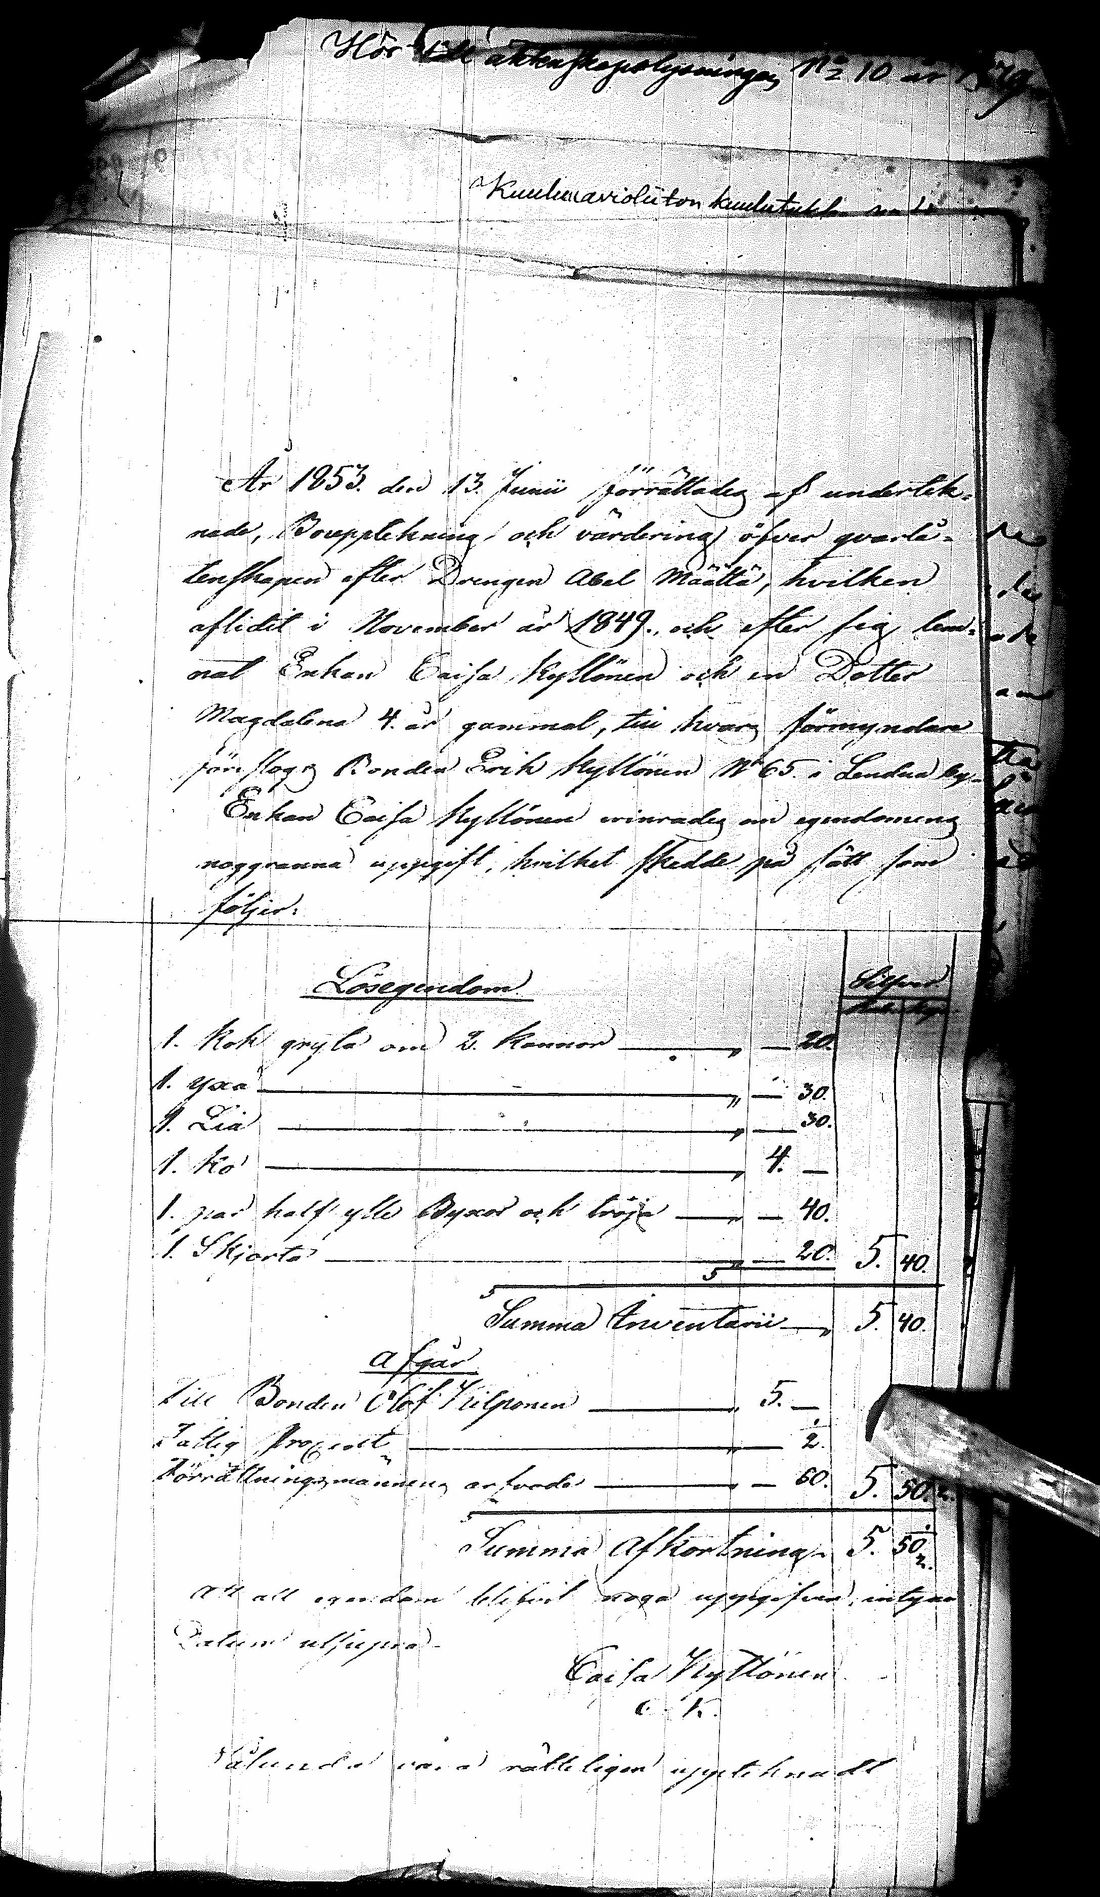 Hör till äktenskapslysningen No 10 år 1879
Kuuluu avioliiton kuulutukseen
År 1853. den 13. Junii förrättades af underteck-
nade, Bouppteckning och värdering öfver qvarlå-
tenskapen efter Drengen Abel Määttä, hvilken
aflidit i November år 1849., och efter sig lem-
nat Enkan Caisa Kyllönen och en Dotter
Magdalena 4. år gammal, till hvars förmyndare
föreslogs Bonden Erik Kyllönen No 65. i Lendua by.
Enkan Caisa Kyllönen erinrades om egendomens
noggranna uppgift, hvilket skedde på sätt som
följer:
Lösegendom
Silfver
Rub. Kop.
1. Kok gryta om 2. Kannor „ — 20.
1. yxa „ — 30.
1. Lia „ — 30.
1. Ko „ 4. —
1. par half ylle Byxor och tröja „ — 40.
1. Skjorta „ — 20. 5. 40.
Summa Inventarii „ 5. 40.
Afgår
Till Bonden Olof Kilponen „ 5. —
Fattig Procent „ — 2.
Förrättningsmännens arfvode „ — 50. 5. 50.
Summa Afkortning 5. 50.
Att all egendom blifvit noga uppgifven, intygar
Datum utsupra.
Caisa Kyllönen
C. K.
Sålunda vara rätteligen upptecknadt